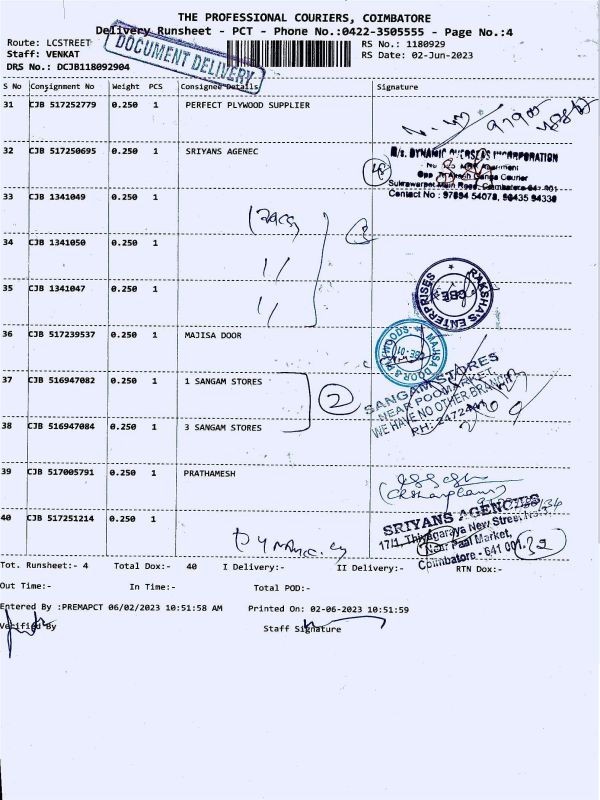 THE PROFESSIONAL COURIERS, COIMBATORE
Delivery Runsheet - PCT - Phone No.:0422-3505555 - Page No.:4
Route: LCSTREET
RS No.: 1180929
Staff: VENKAT
RS Date: 02-Jun-2023
DRS No.: DCJB118092904
DOCUMENT DELIVERY
S No Consignment No Weight PCS Consignee Details Signature
31 CJB 517252779 0.250 1 PERFECT PLYWOOD SUPPLIER
32 CJB 517250695 0.250 1 SRIYANS AGENEC
48
Contact No : 97894 54078, 98435 94330
33 CJB 1341049 0.250 1
34 CJB 1341050 0.250 1
3
35 CJB 1341047 0.250 1
RAKSHA'S ENTERPRISES
CBE
36 CJB 517239537 0.250 1 MAJISA DOOR
MAJISA DOOR & PLYWOODS
CBE-01
37 CJB 516947082 0.250 1 1 SANGAM STORES
2
SANGAM STORES
NEAR POOMARKET,
WE HAVE NO OTHER BRANCH
PH: 2472401
38 CJB 516947084 0.250 1 3 SANGAM STORES
39 CJB 517005791 0.250 1 PRATHAMESH
40 CJB 517251214 0.250 1
SRIYANS AGENCIES
17/1, Thiyagaraya New Street, No.3,
Near Paal Market,
Coimbatore - 641 001.
32
Tot. Runsheet:- 4 Total Dox:- 40 I Delivery:- II Delivery:- RTN Dox:-
Out Time:- In Time:- Total POD:-
Entered By :PREMAPCT 06/02/2023 10:51:58 AM Printed On: 02-06-2023 10:51:59
Verified By Staff Signature